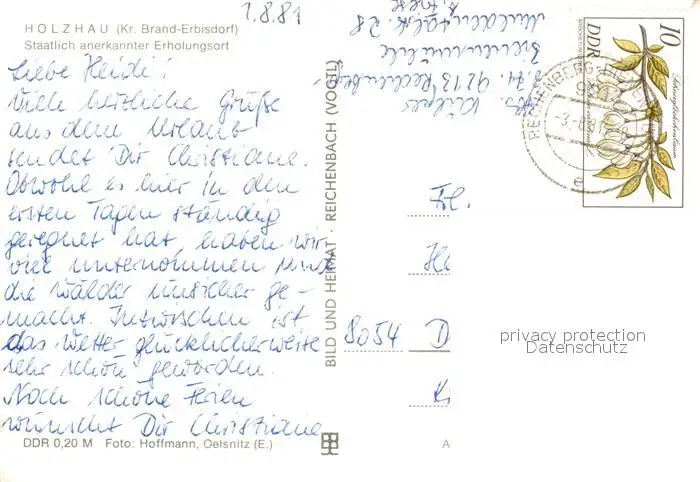 1.8.81
HOLZHAU (Kr. Brand-Erbisdorf)
Staatlich anerkannter Erholungsort
Liebe Heidi!
Viele herzliche Grüße
aus dem Urlaub
sendet Dir Christiane.
Obwohl es hier in den
ersten Tagen ständig
geregnet hat, haben wir
viel unternommen und
die Wälder unsicher ge-
macht. Inzwischen ist
das Wetter glücklicherweise
sehr schön geworden.
Noch schöne Ferien
wünscht Dir Christiane
DDR 0,20 M Foto: Hoffmann, Oelsnitz (E.)
BILD UND HEIMAT · REICHENBACH (VOGTL)
Abs.
z. Zt. 9213 Rechenberg
Bienenmühle
Muldentalstr. 28
10
DDR
RECHENBERG-BIENEN
Fr.
He
8054 D
A
privacy protection
Datenschutz